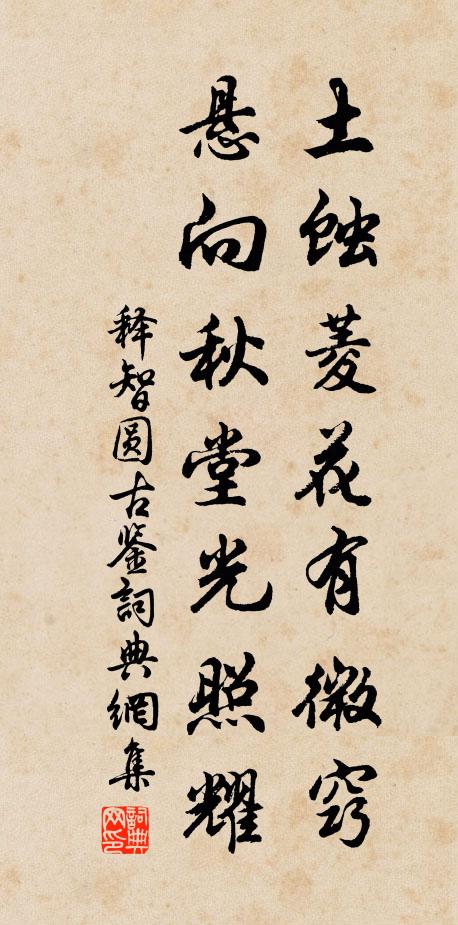 土蚀菱花有微窍
悬向秋堂光照耀
释智圆古鉴詞典網集
詞典网印